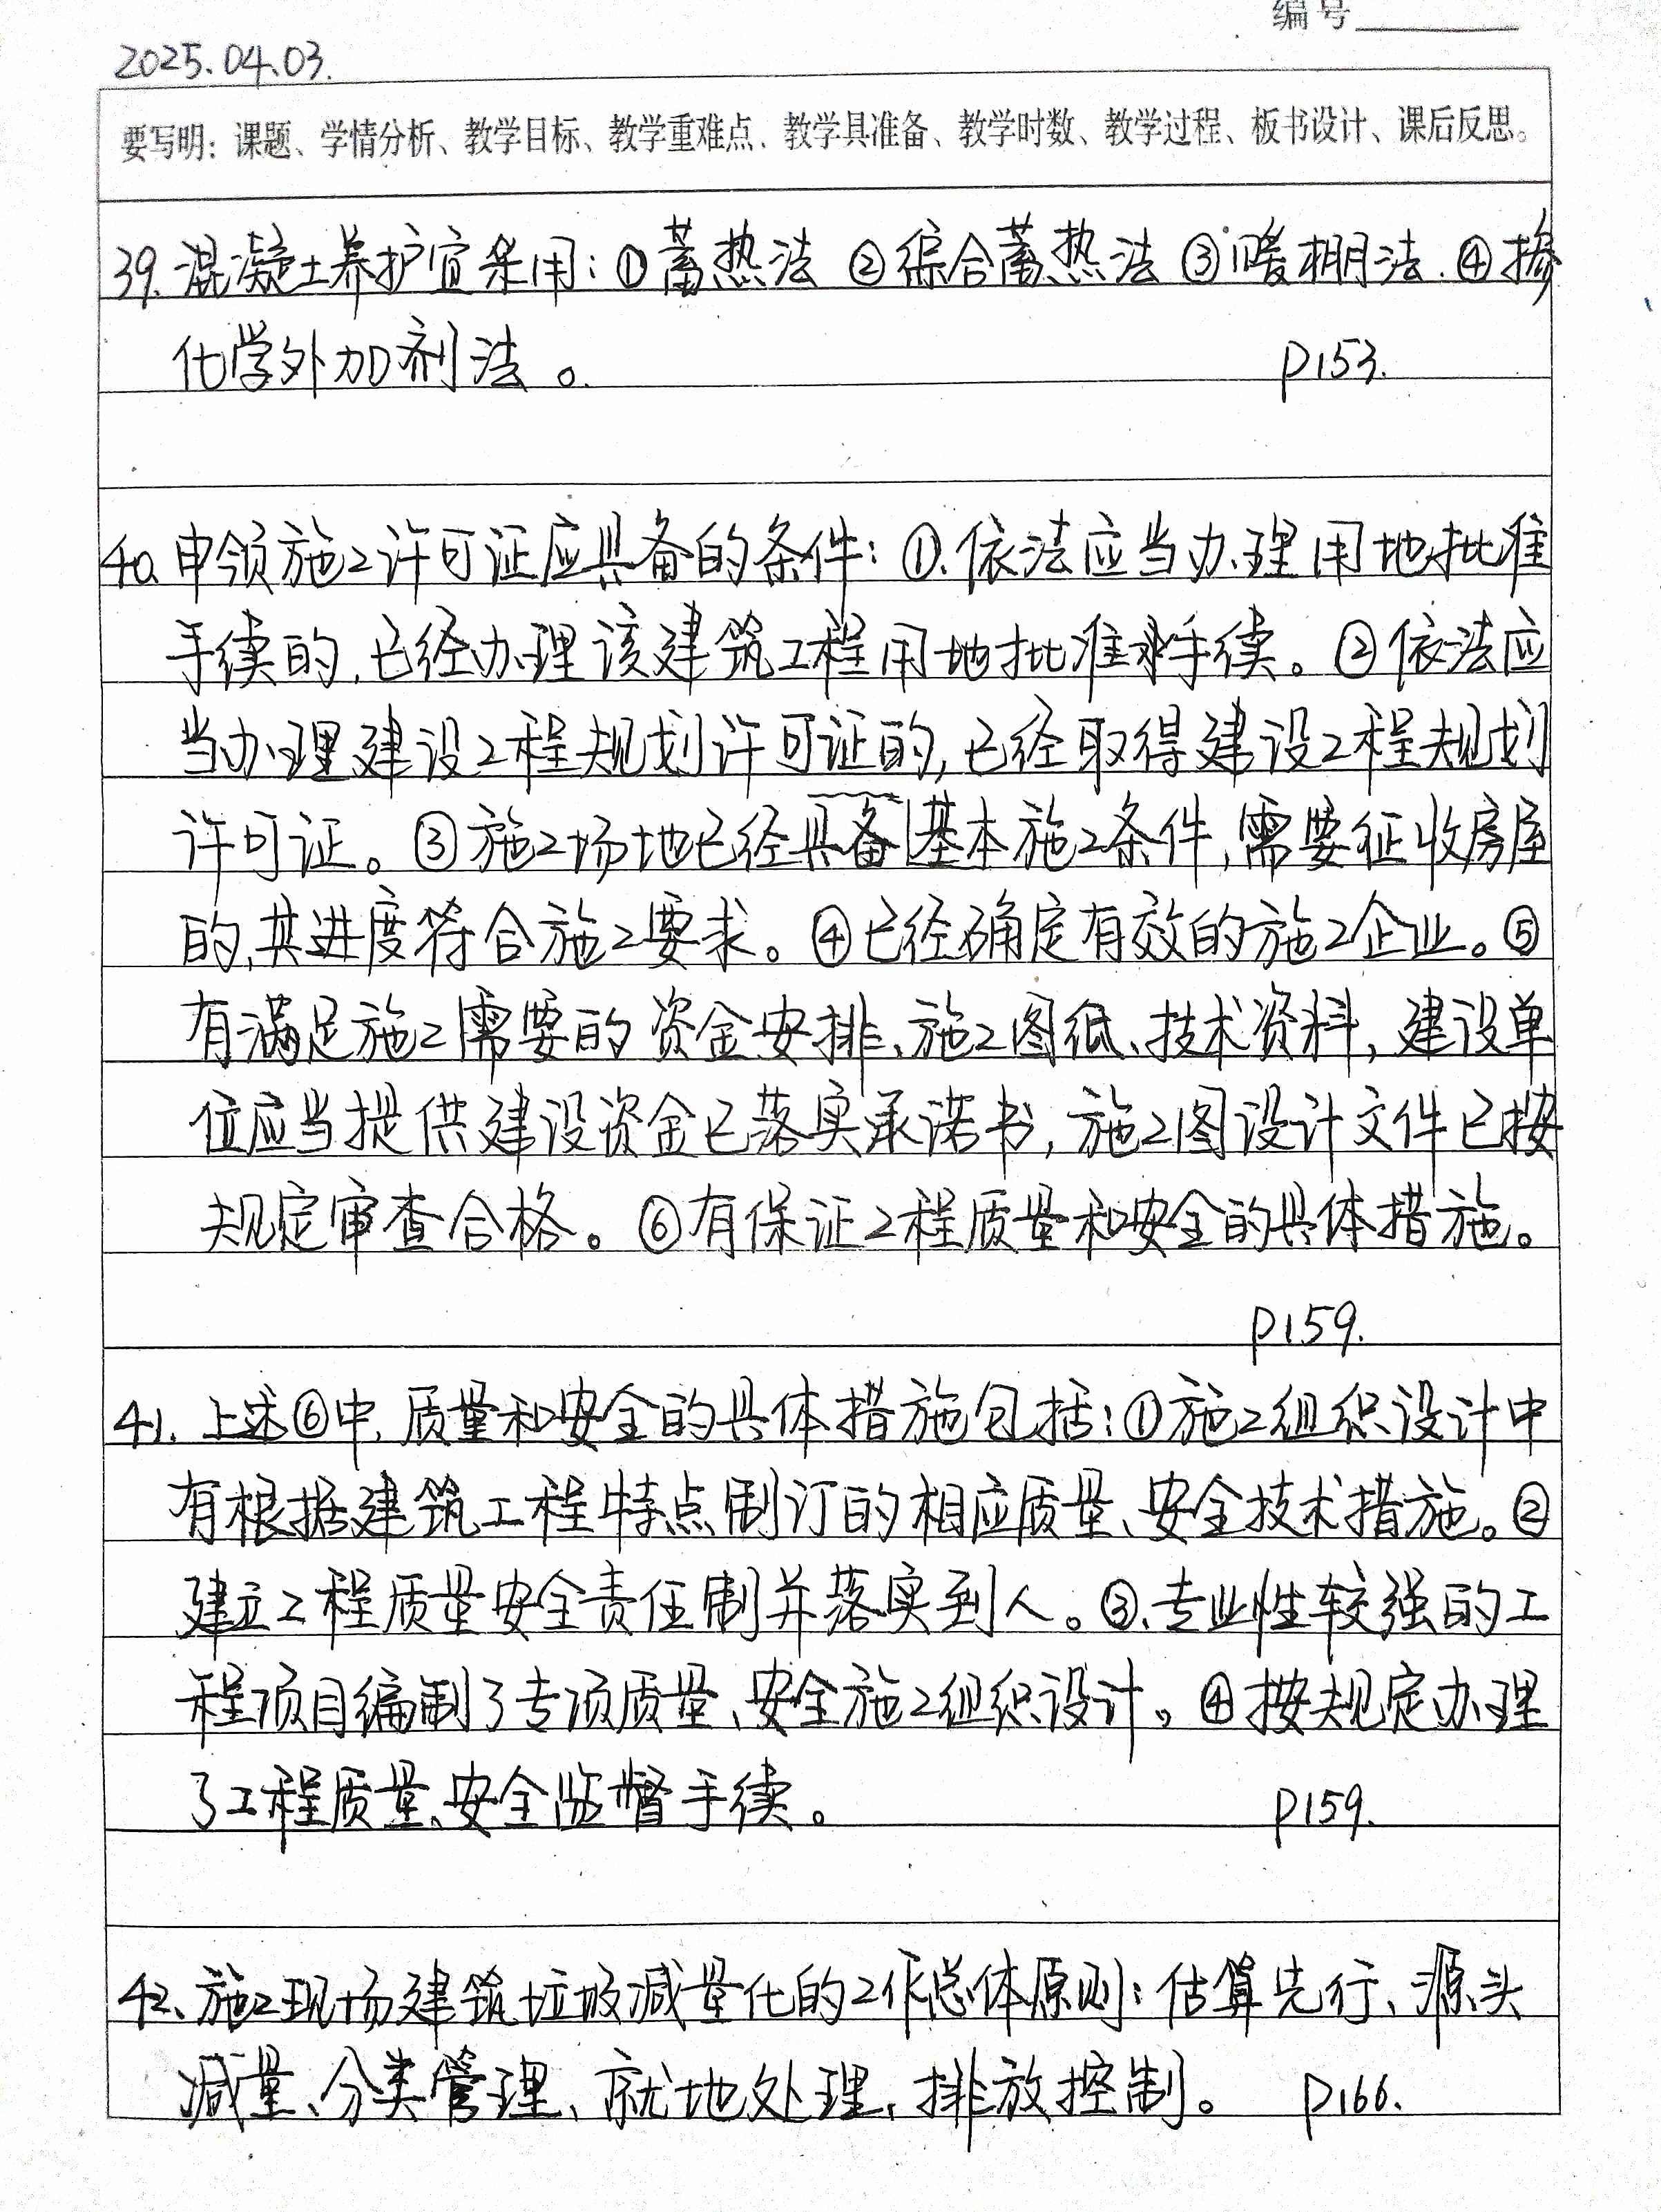 编号
2025.04.03.
要写明：课题、学情分析、教学目标、教学重难点、教学具准备、教学时数、教学过程、板书设计、课后反思。
39.混凝土养护宜采用：①蓄热法 ②综合蓄热法 ③暖棚法.④掺
化学外加剂法。 P153.
40.申领施工许可证应具备的条件：①.依法应当办理用地批准
手续的,已经办理该建筑工程用地批准手续。②依法应
当办理建设工程规划许可证的,已经取得建设工程规划
许可证。③施工场地已经具备基本施工条件,需要征收房屋
的,其进度符合施工要求。④已经确定有效的施工企业。⑤
有满足施工需要的资金安排、施工图纸、技术资料,建设单
位应当提供建设资金已落实承诺书,施工图设计文件已按
规定审查合格。⑥有保证工程质量和安全的具体措施。
P159.
41.上述⑥中,质量和安全的具体措施包括：①施工组织设计中
有根据建筑工程特点制订的相应质量、安全技术措施。②
建立工程质量安全责任制并落实到人。③、专业性较强的工
程项目编制了专项质量、安全施工组织设计。④按规定办理
了工程质量、安全监督手续。 P159.
42、施工现场建筑垃圾减量化的工作总体原则：估算先行、源头
减量、分类管理、就地处理、排放控制。 P166.